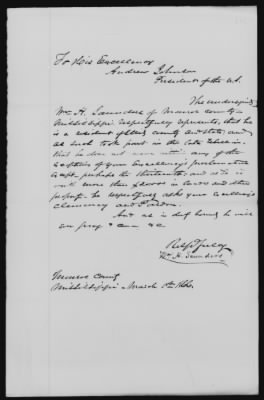 To His Excellency
Andrew Johnson
President of the U.S.
The undersigned
Wm H. Saunders of Monroe County
Mississippi respectfully represents, that he
is a resident of said county and state, and
as such took part in the late rebellion.
that he does not come within any of the
exceptions of your Excellency's proclamation
except perhaps the thirteenth, and as he is
worth more than $20000 in lands and other
property. he respectfully asks your Excellency's
clemency and Pardon.
And as in duty bound he will
ever pray &c
Respectfully
Wm H. Saunders
Monroe County
Mississippi March